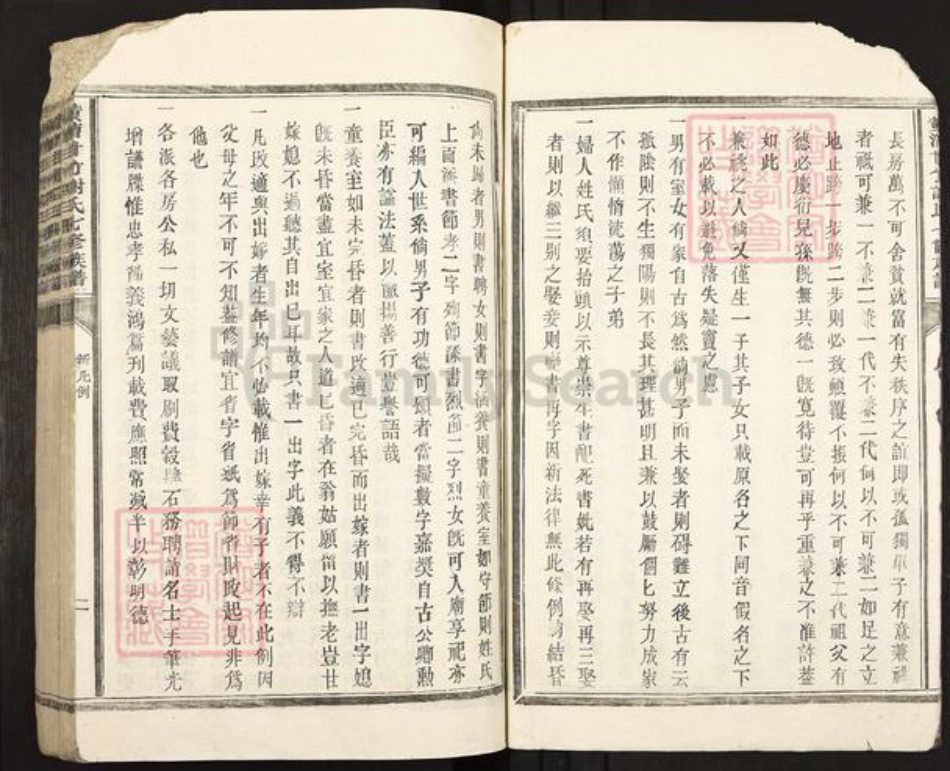 長房萬不可舍貧就富有失秩序之誼即或孤獨單子有意兼祧
者祗可兼一不兼二兼一代不兼二代何以不可兼二如足之立
地止跨一步跨二步則必致顛覆不振何以不可兼二代祖父有
德必慶衍兒孫既無其德一既寬待豈可再乎重兼之不准許蓋
如此
一兼祧之人倘又僅生一子其子女只載原名之下同音假名之下
不必載以避免落失疑竇之患
一男有室女有家自古為然倘男子而未娶者則碍難立後古有云
孤陰則不生獨陽則不長其理甚明且兼以鼓勵個匕努力成家
不作懶惰流蕩之子弟
一婦人姓氏須要抬頭以示尊崇生書配死書妣若有再娶再三娶
者則以繼三別之娶妾則變書再字因新法律無此條例
結昏
尚未歸者男則書聘女則書字涵養則書童養室如守節則姓氏
上面派書節孝二字殉節添書烈節二字烈女既可入廟享祀亦
可編入世系倘男子有功德可頌者當擬數字嘉獎自古公卿勲
臣亦有謚法蓋以讚揚善行豈譽語哉
一童養室如未完昏者則書改適已完昏而出嫁者則書一出字媳
既未昏當盡宜室宜家之人道已昏者在翁姑願留以撫老豈甘
嫁媳不過聽其自出已耳故只書一出字此義不得不辯
一凡改適與出嫁者生年均不必載惟出嫁幸有子者不在此例因
父母之年不可不知蓋修譜宜省字省紙為節省財政起見非為
他也
一各派各房公私一切文藝議取刷費穀肆石務聘請名士手筆光
增譜牒惟忠孝節義鴻篇刊載費應照常減半以彰明德
竹謝氏七修族譜
新凡例
二
FamilySearch